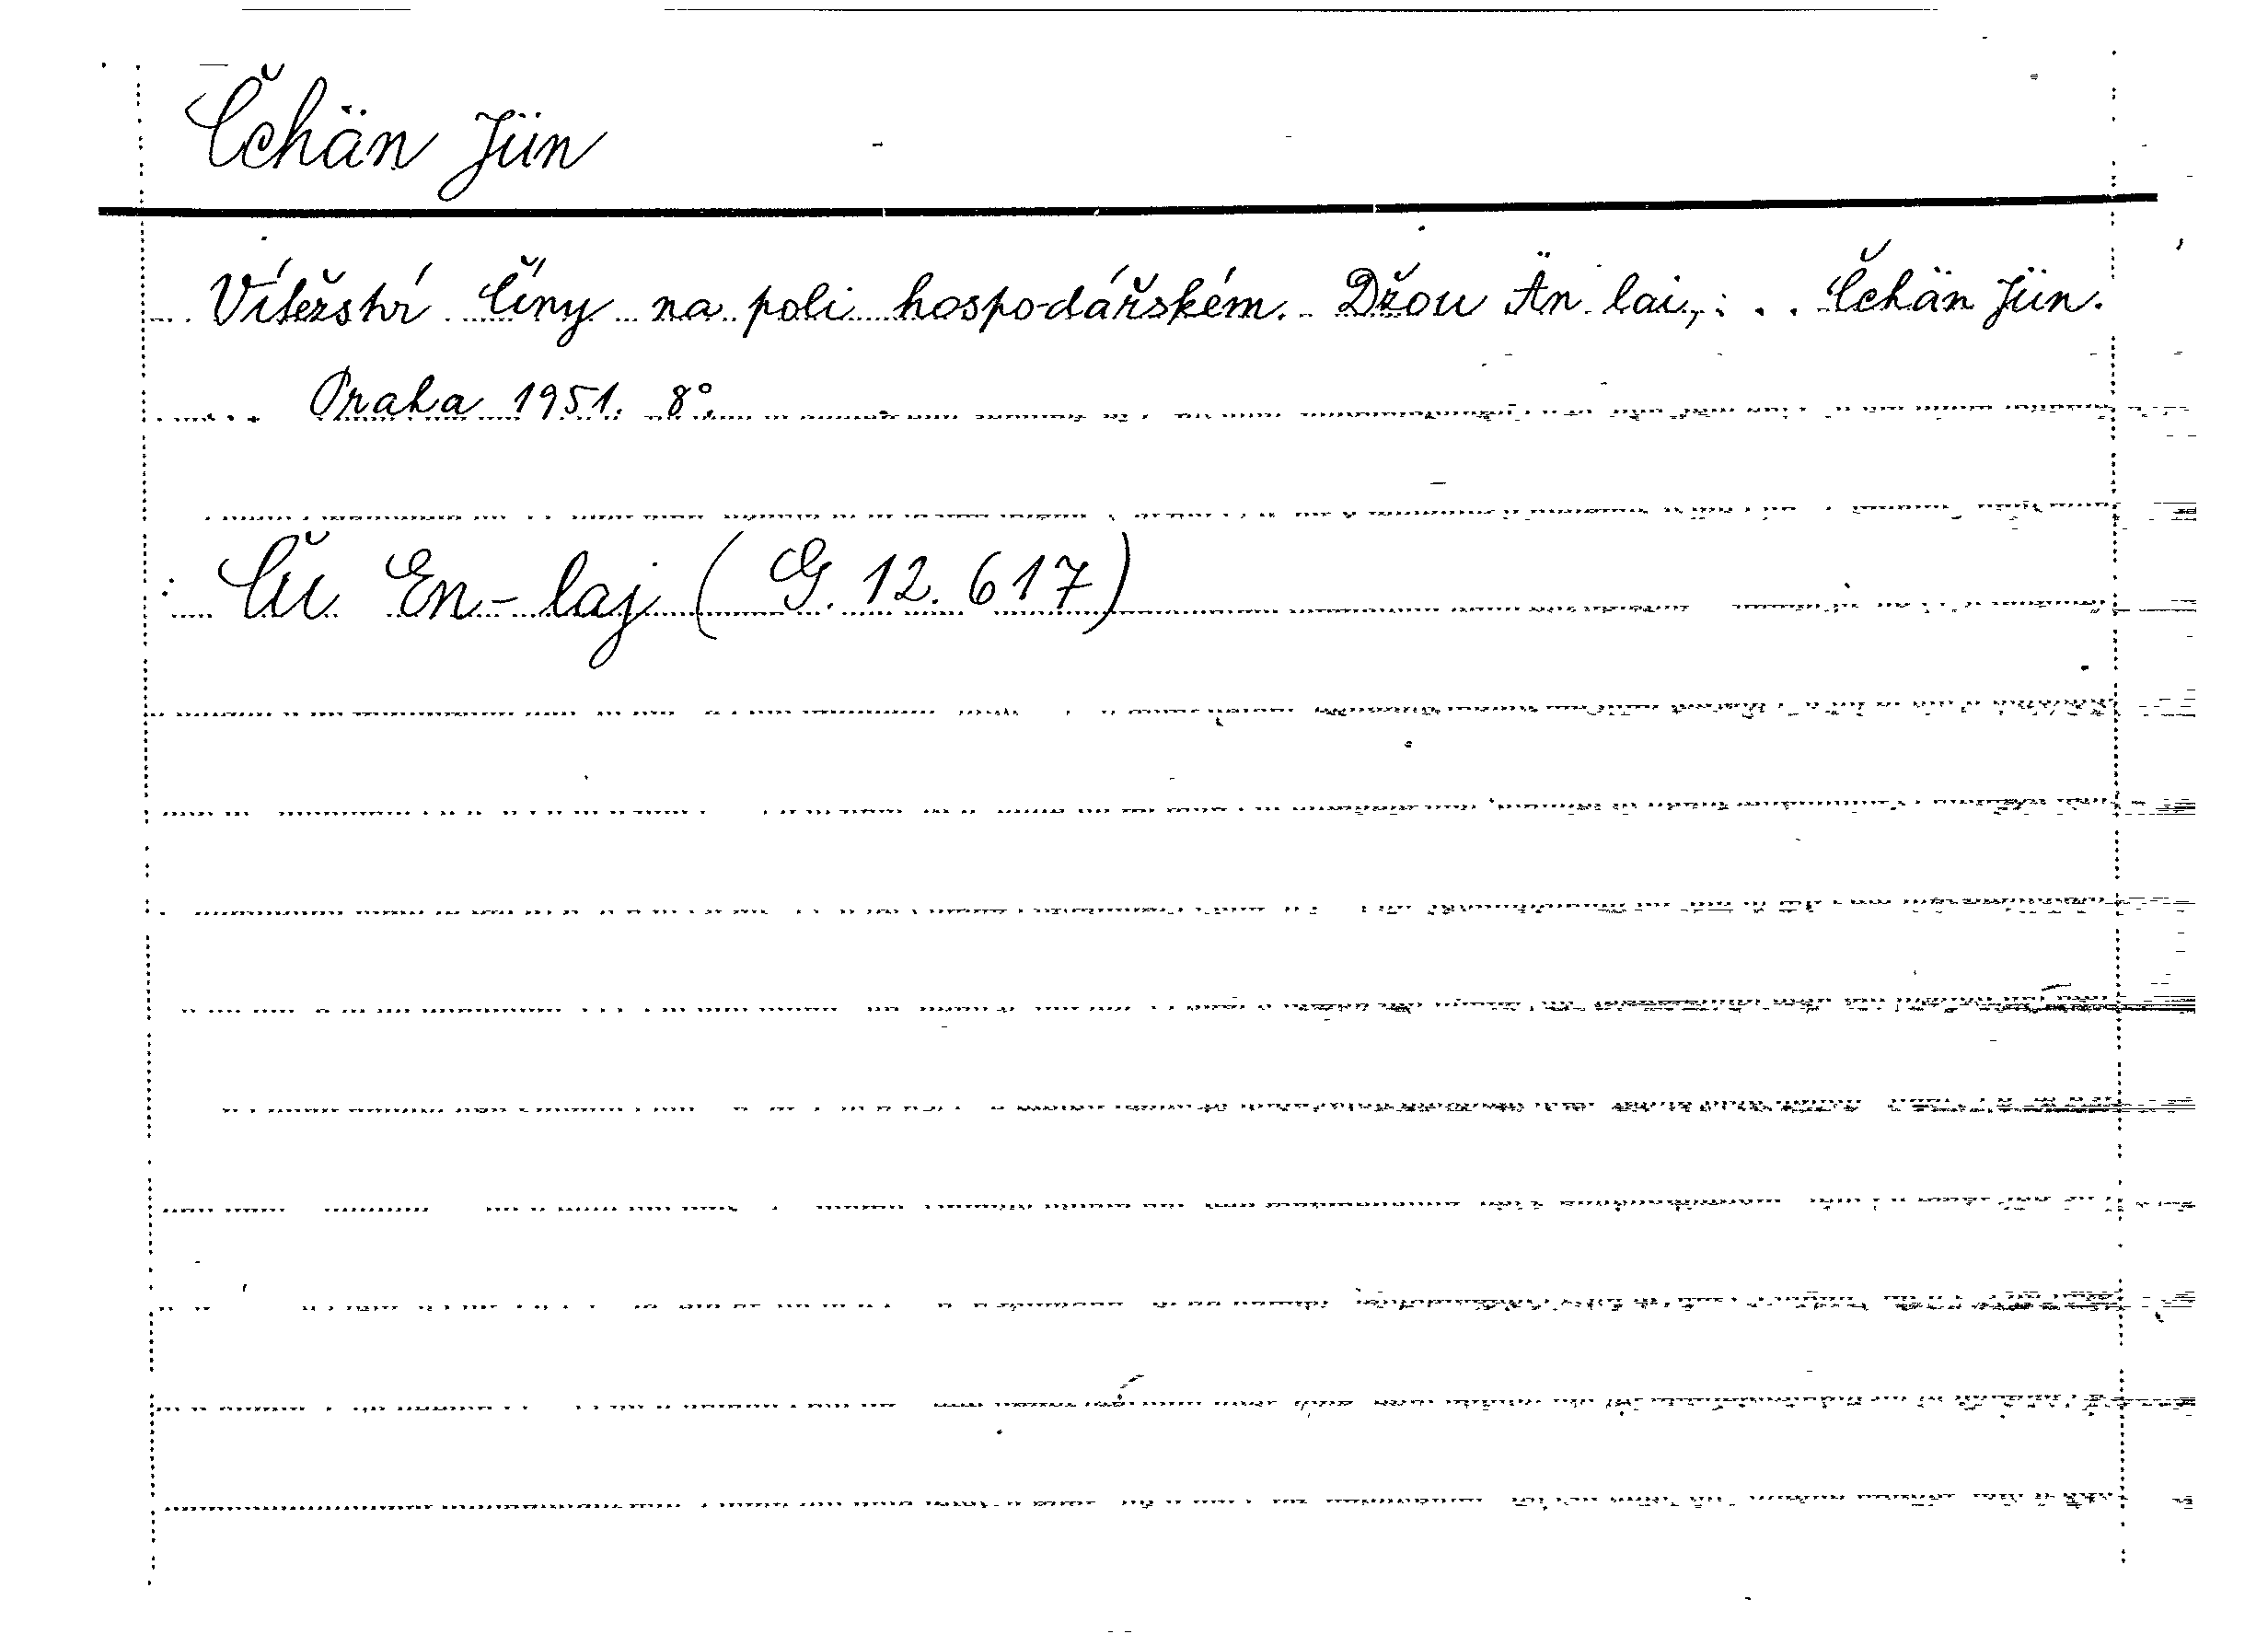 Čchän Jün
Vítežství Číny na poli hospodářském. Džou Än lai, . . . Čchän Jün.
Praha 1951. 8°.
Ču En-laj (G. 12. 617)